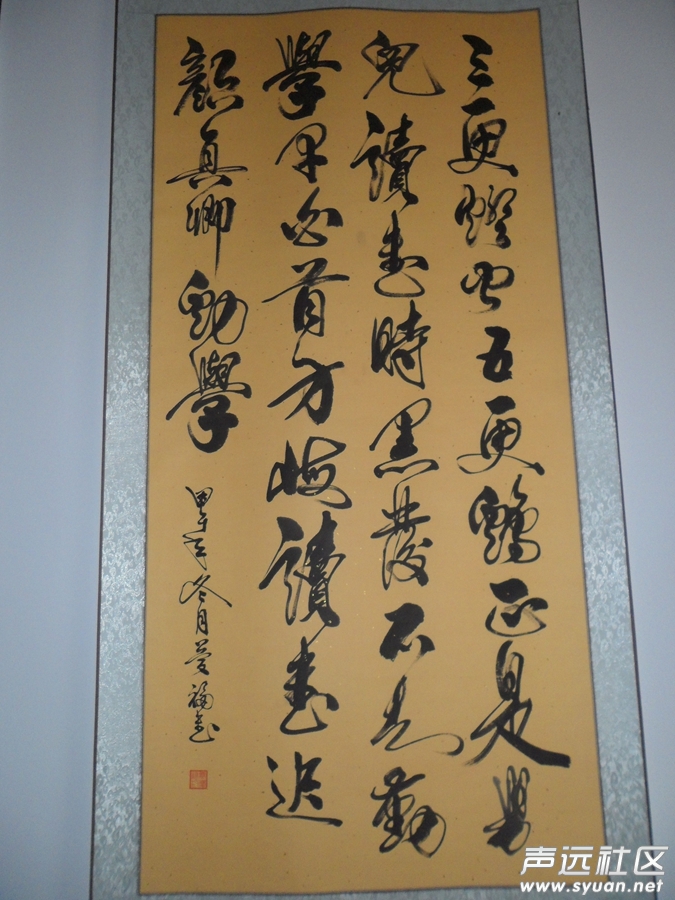 三更燈火五更鷄正是男
兒讀書時黑發不知勤
學早白首方悔讀書遲
顏真卿勸學
甲午年冬月福書
声远社区
www.syuan.net